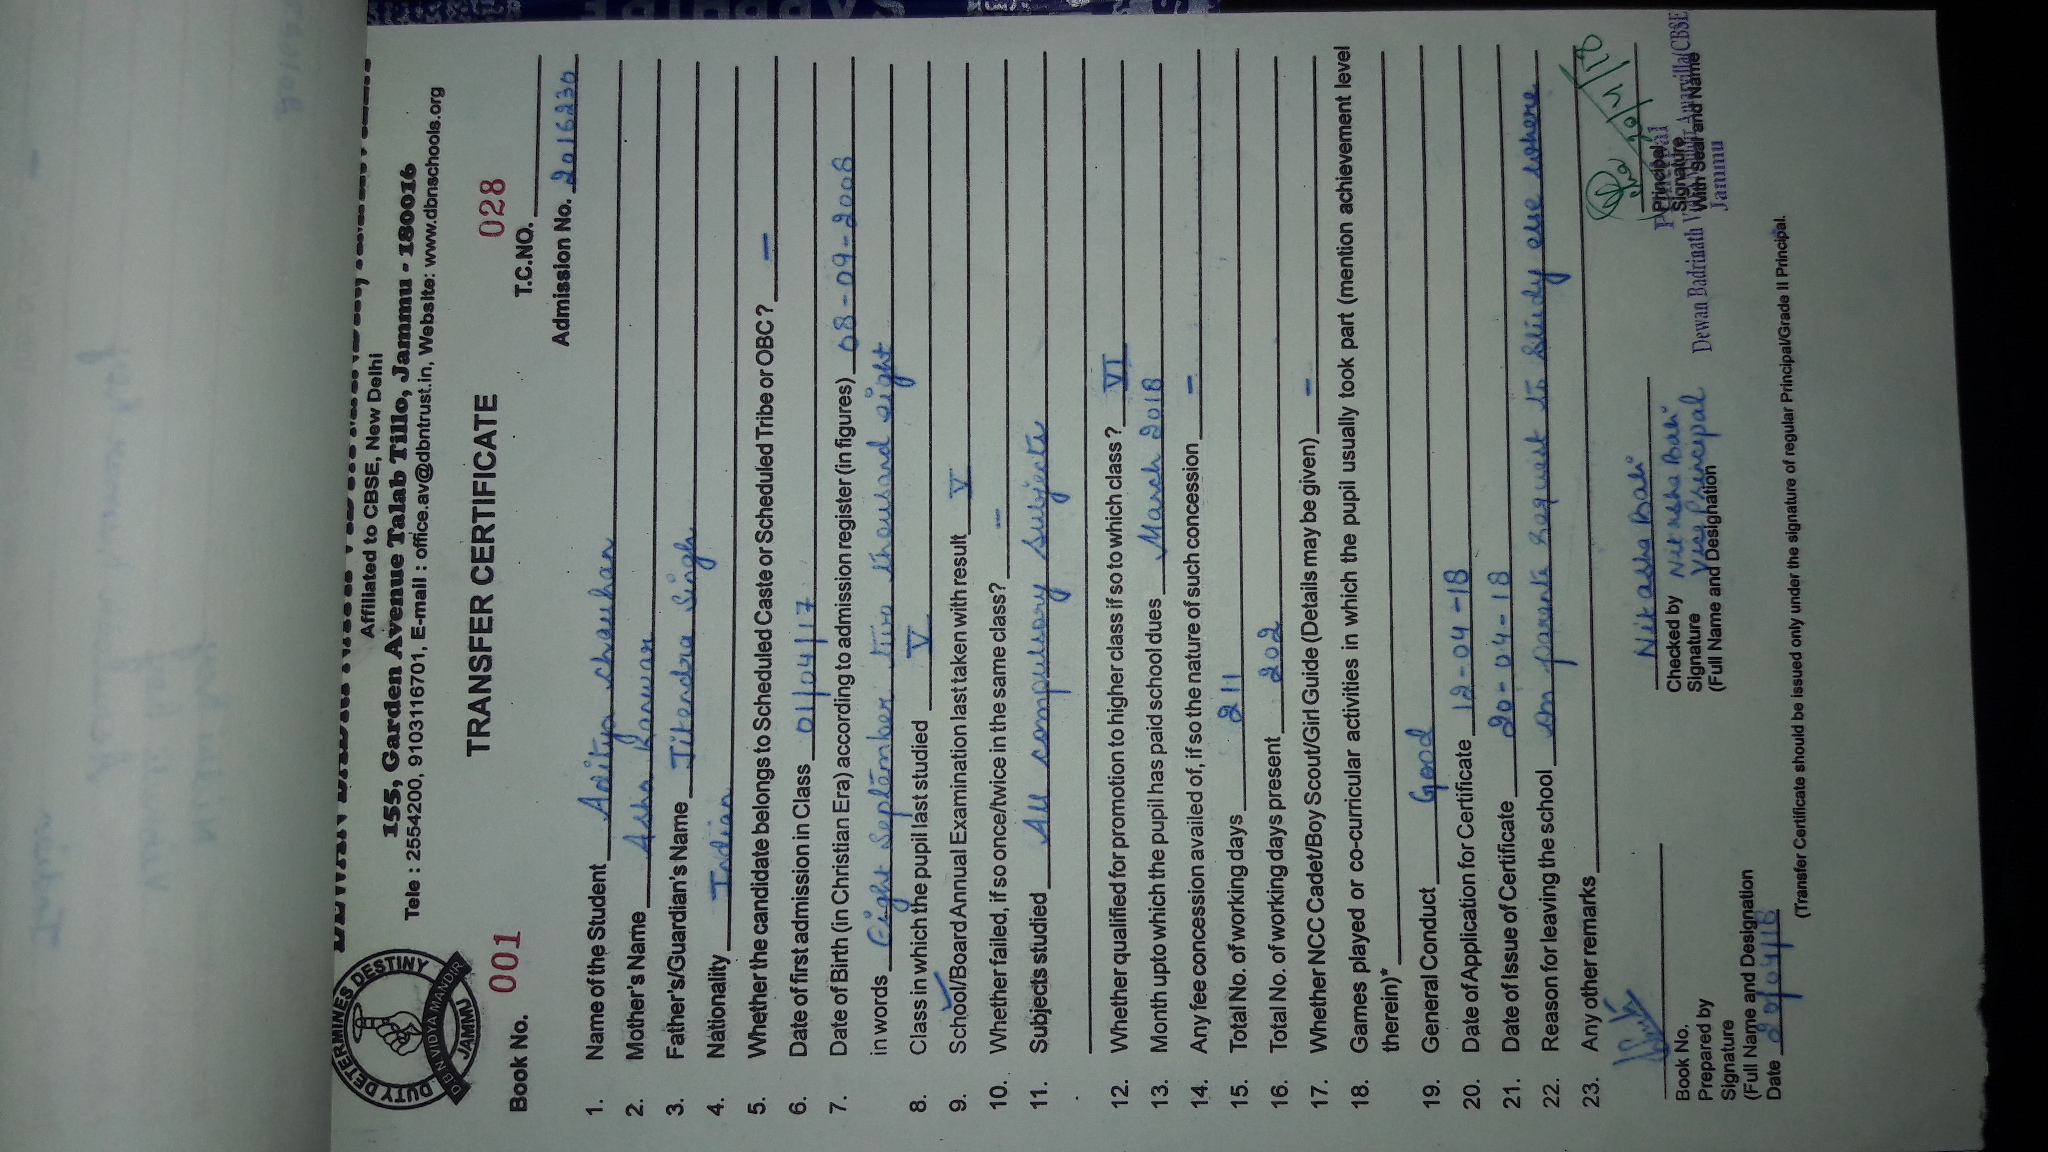 Affiliated to CBSE, New Delhi
155, Garden Avenue Talab Tillo, Jammu - 180016
Tele : 2554200, 9103116701, E-mail : office.av@dbntrust.in, Website: www.dbnschools.org
DUTY DETERMINES DESTINY
DBN VIDYA MANDIR
JAMMU
TRANSFER CERTIFICATE
Book No. 001
028
T.C.NO.
Admission No. 2016230
1. Name of the Student Aditya Chauhan
2. Mother's Name Asha Kanwar
3. Father's/Guardian's Name Jitendra Singh
4. Nationality Indian
5. Whether the candidate belongs to Scheduled Caste or Scheduled Tribe or OBC? -
6. Date of first admission in Class 01/04/17
7. Date of Birth (in Christian Era) according to admission register (in figures) 08-09-2008
in words Eight September two thousand eight
8. Class in which the pupil last studied V
9. School/Board Annual Examination last taken with result V
10. Whether failed, if so once/twice in the same class? -
11. Subjects studied All compulsory subjects
12. Whether qualified for promotion to higher class if so to which class? VI
13. Month upto which the pupil has paid school dues March 2018
14. Any fee concession availed of, if so the nature of such concession -
15. Total No. of working days 211
16. Total No. of working days present 202
17. Whether NCC Cadet/Boy Scout/Girl Guide (Details may be given) -
18. Games played or co-curricular activities in which the pupil usually took part (mention achievement level
therein)*
19. General Conduct Good
20. Date of Application for Certificate 12-04-18
21. Date of Issue of Certificate 20-04-18
22. Reason for leaving the school on parents request to study else where
23. Any other remarks
Book No.
Prepared by
Signature
(Full Name and Designation
Date 20/04/18
Checked by
Signature
Vice Principal
(Full Name and Designation
Principal
Signature
With Seal and Name
Dewan Badrinath
Jammu
(Transfer Certificate should be issued only under the signature of regular Principal/Grade II Principal.